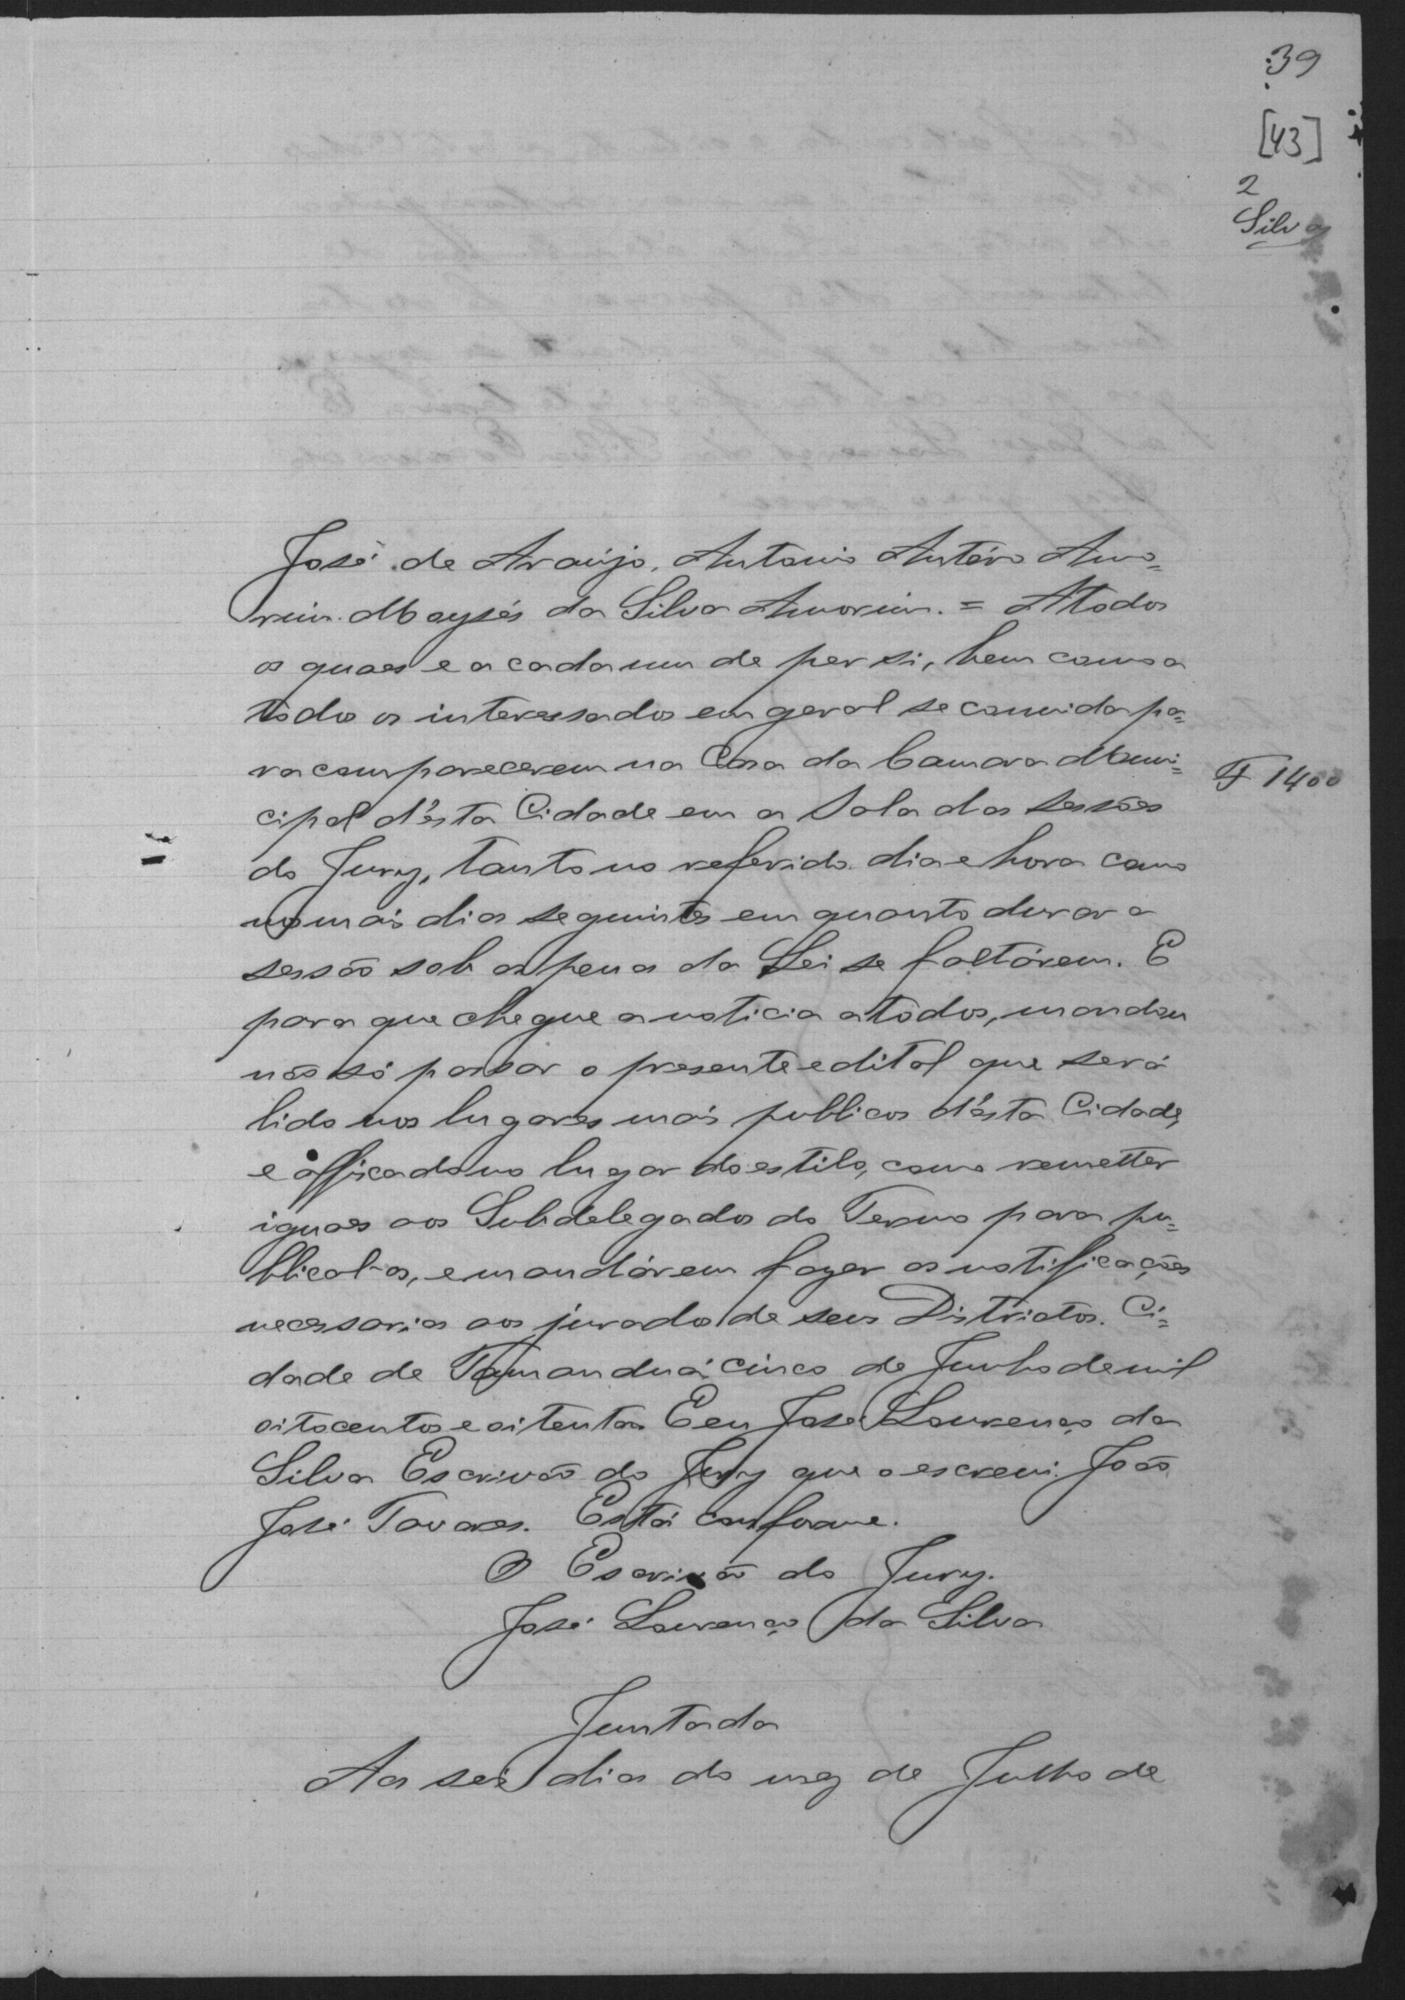 39
[43]
2
Silva
José de Araújo, Antonio Antéro Amo=
rim. Moysés da Silva Amorim. = A todos
os quaes e a cada um de per si, bem como a
todos os interessados em geral se convida pa=
ra comparecerem na Casa da Camara Muni=
cipal d'ésta Cidade em a Sala das sessões
do Jury, tanto no referido dia e hora como
nos mais dias seguintes em quanto durar a
sessão sob as penas da Lei se faltárem. E
para que chegue a noticia a tódos, mandou
não só passar o presente edital que será
lido nos lugares mais publicos d'ésta Cidade,
e afficado no lugar do estilo, como remetter
iguaes aos Subdelegados do Termo para pu=
blical-os, e mandárem fazer as notificações
necessarias aos jurados de seus Districtos. Ci=
dade de Tamanduá cinco de Junho de mil
oitocentos e oitenta. E eu José Lourenço da
Silva Escrivão do Jury que o escrevi. João
José Tavares. Está conforme.
O Escrivão do Jury.
José Lourenço da Silva
Juntada
Aos seis dias do mez de Julho de
1400